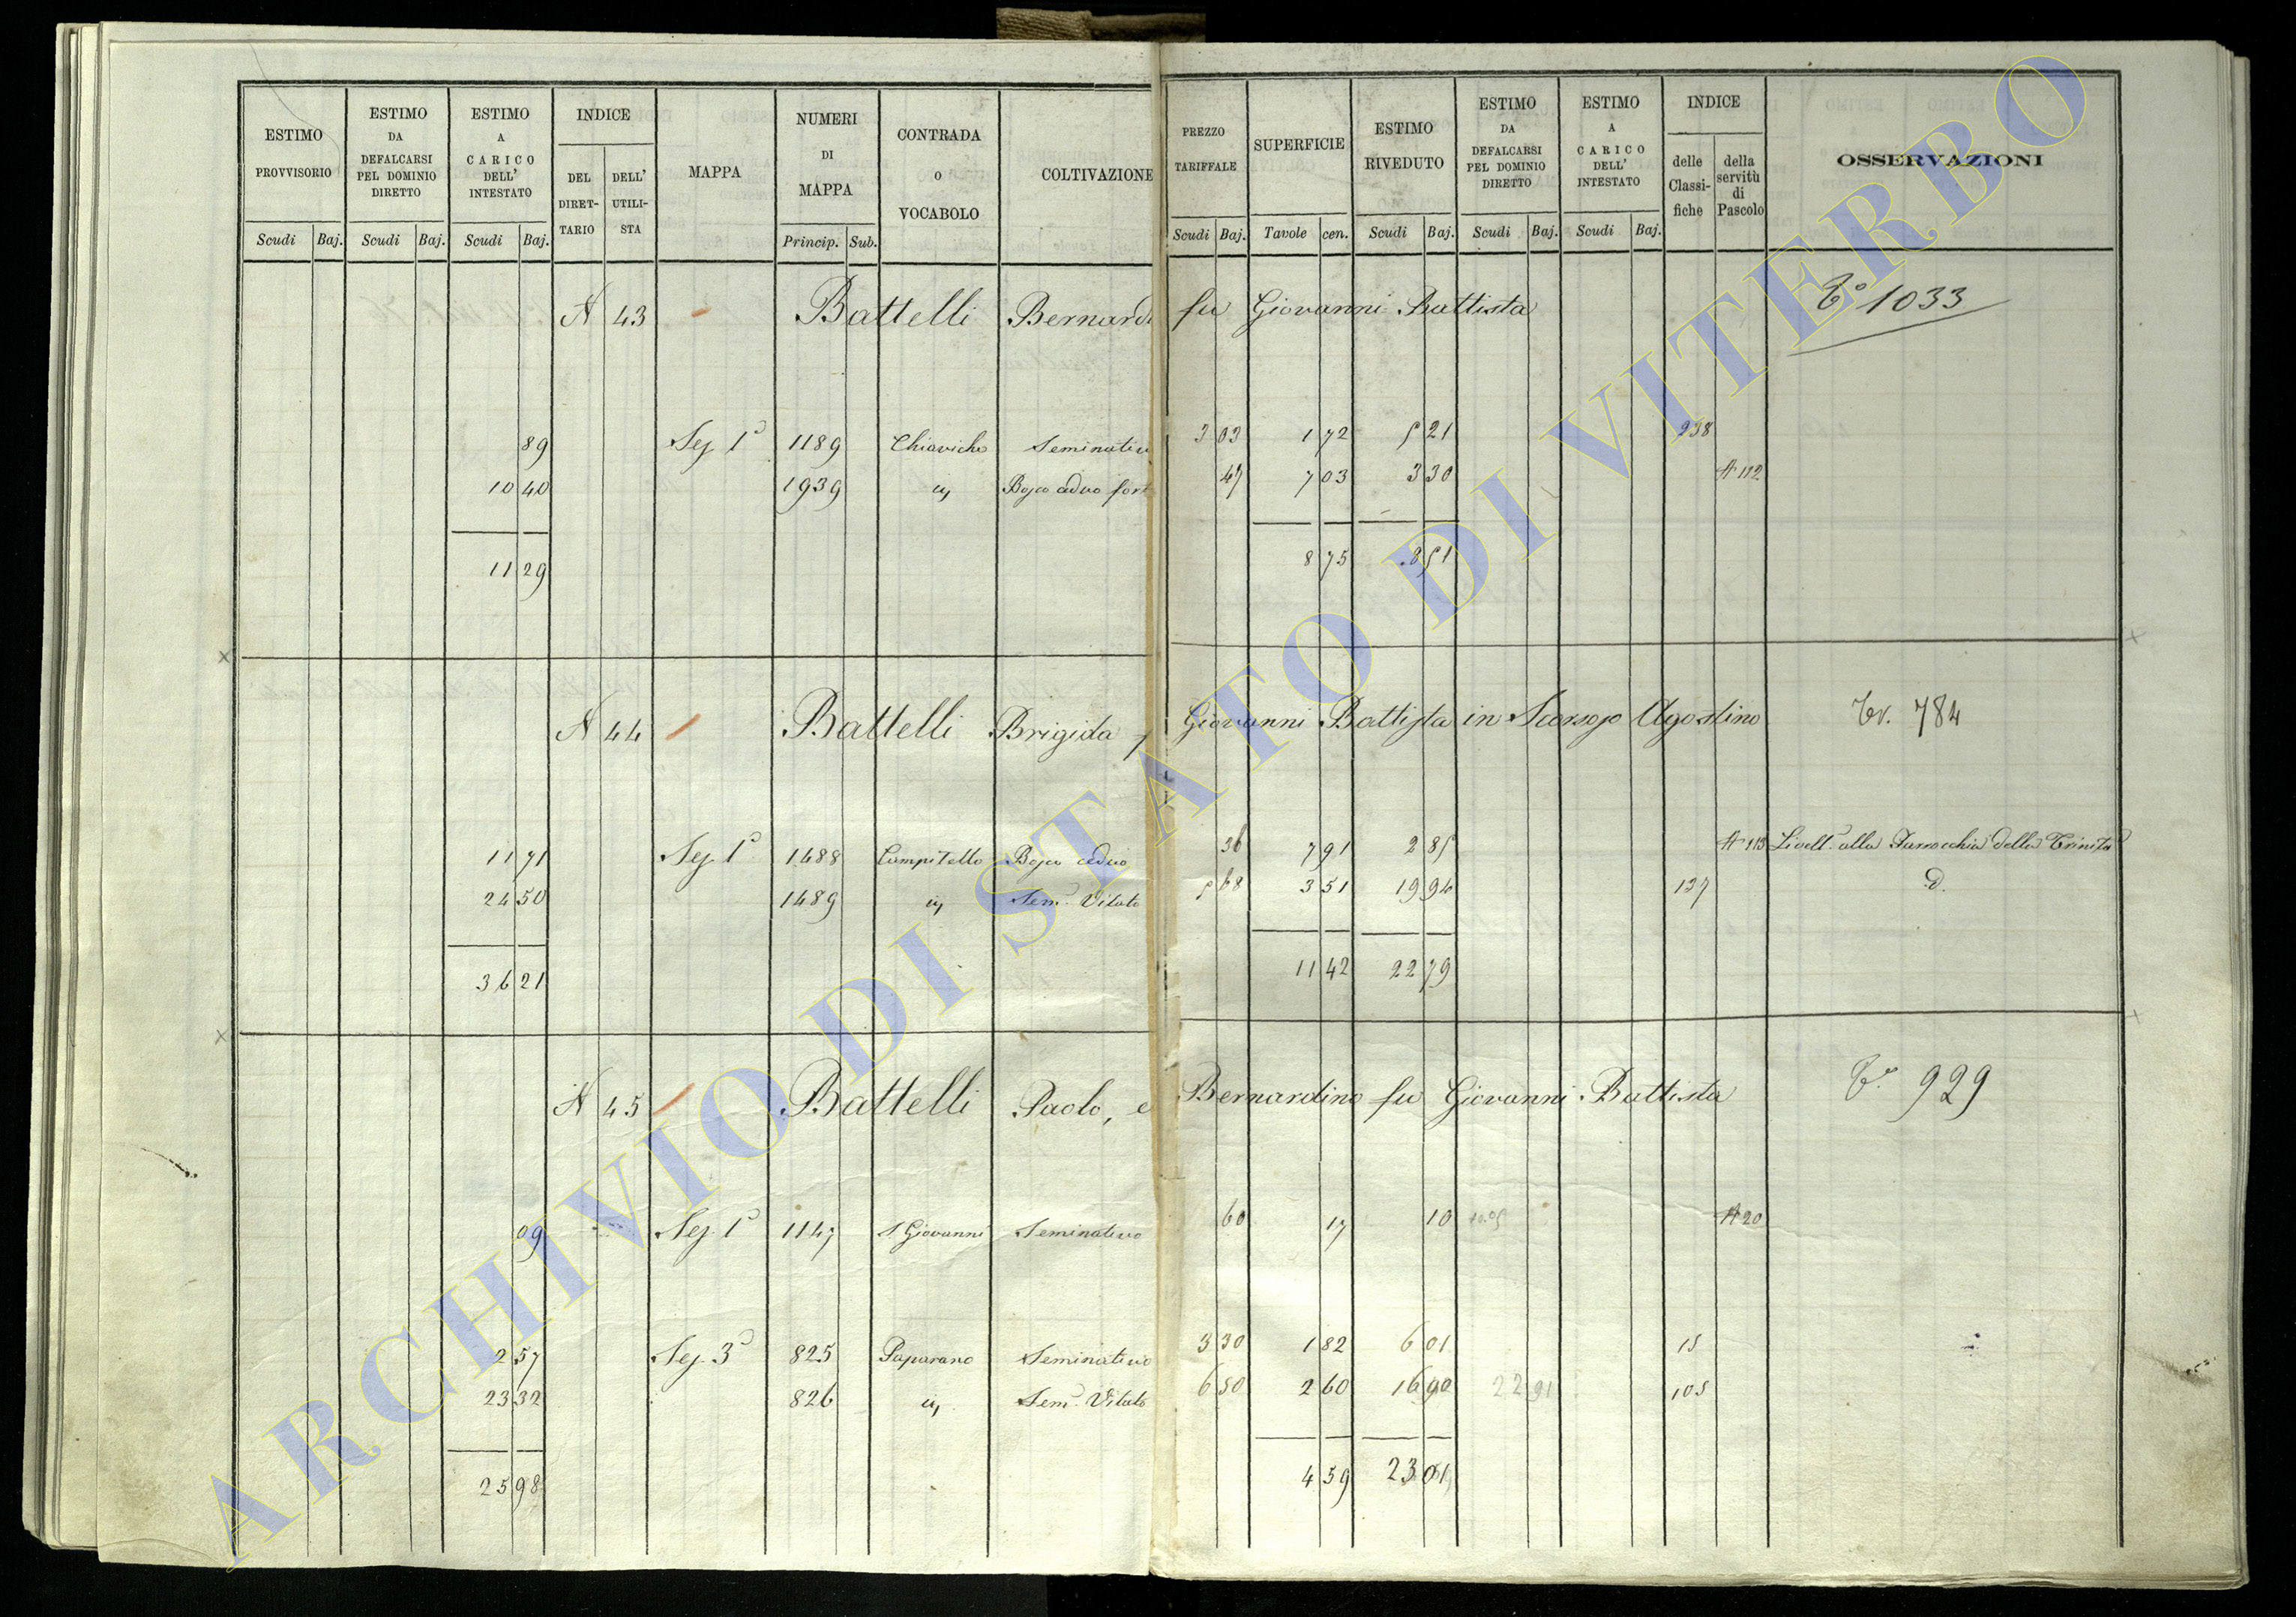 ESTIMO PROVVISORIO | ESTIMO DA DEFALCARSI PEL DOMINIO DIRETTO | ESTIMO A CARICO DELL' INTESTATO | INDICE DEL DIRET-TARIO | DELL' UTILI-STA | MAPPA | NUMERI DI MAPPA | CONTRADA O VOCABOLO | COLTIVAZIONE | PREZZO TARIFFALE | SUPERFICIE | ESTIMO RIVEDUTO | ESTIMO DA DEFALCARSI PEL DOMINIO DIRETTO | ESTIMO A CARICO DELL' INTESTATO | INDICE delle Classi-fiche | della servitù di Pascolo | OSSERVAZIONI
Scudi Baj. Scudi Baj. Scudi Baj. Princip. Sub. Scudi Baj. Tavole cen. Scudi Baj. Scudi Baj. Scudi Baj.
A 43 Battelli Bernardi fu Giovanni Battista Tº 1033
89 Sez 1ª 1189 Chiaviche Seminativo 3 03 1 72 5 21 238
10 40 1939 " Bosco ceduo fort 47 7 03 3 30 A 112
11 29 8 75 8 51
A 44 Battelli Brigida f Giovanni Battista in Agostino Tr. 784
11 71 Sez 1ª 1488 Campitello Bosco ceduo 36 7 91 2 85 A 113 Livell. alla Parrocchia della Trinità
24 50 1489 " Sem. Vitato 5 68 3 51 19 94 137 D.
36 21 11 42 22 79
A 45 Battelli Paolo, e Bernardino fu Giovanni Battista Tº 929
09 Sez 1ª 1147 S Giovanni Seminativo 60 17 10 A 20
2 57 Sez 3ª 825 Paparano Seminativo 3 30 1 82 6 01 15
23 32 826 " Sem. Vitato 6 50 2 60 16 90 22 91 105
25 98 4 59 23 01
ARCHIVIO DI STATO DI VITERBO